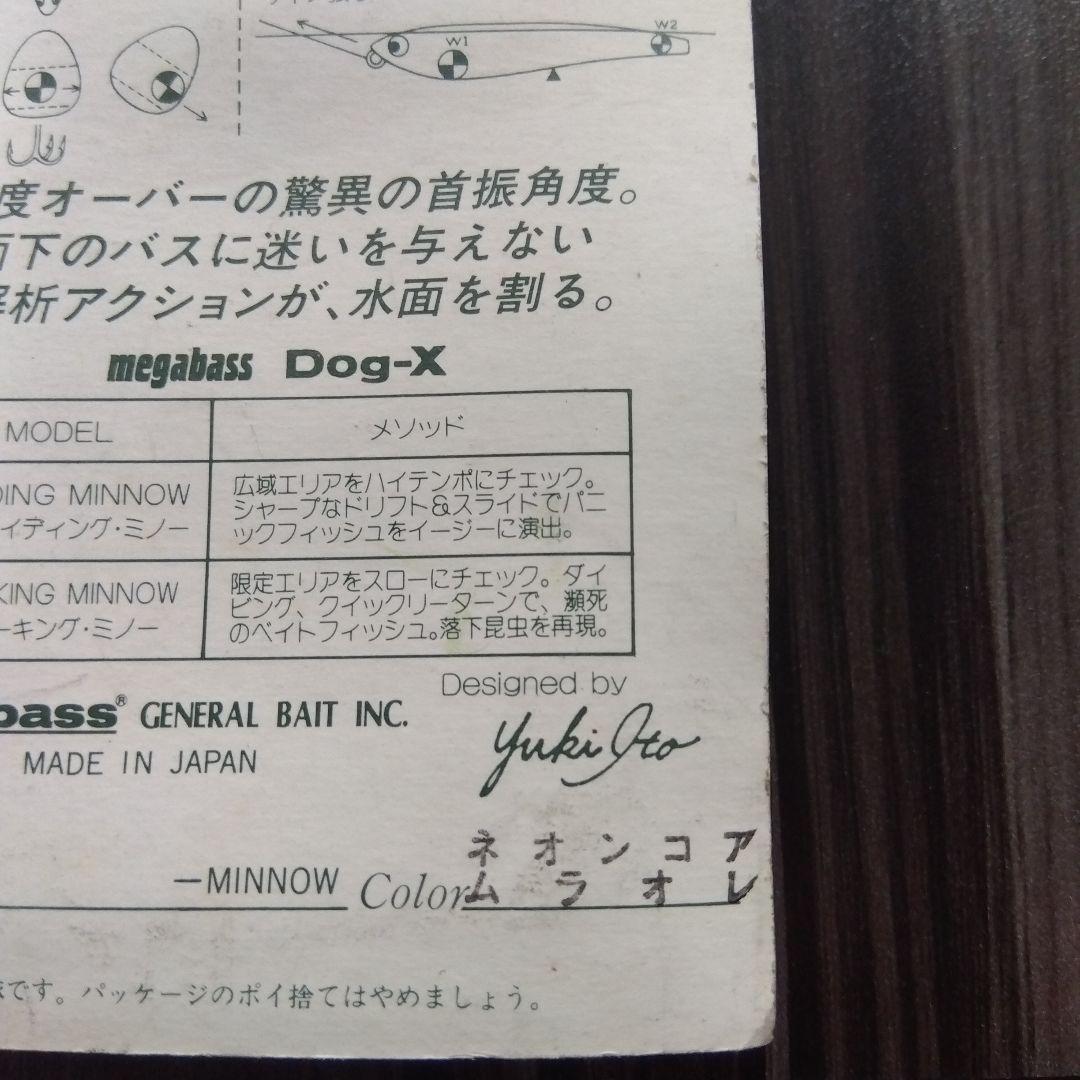 W1
W2
度オーバーの驚異の首振角度。
下のバスに迷いを与えない
解析アクションが、水面を割る。
megabass Dog-X
MODEL
メソッド
DING MINNOW
イディング・ミノー
広域エリアをハイテンポにチェック。
シャープなドリフト&スライドでパニ
ックフィッシュをイージーに演出。
KING MINNOW
ーキング・ミノー
限定エリアをスローにチェック。ダイ
ビング、クイックリーターンで、瀕死
のベイトフィッシュ。落下昆虫を再現。
Designed by
Yuki Ito
bass® GENERAL BAIT INC.
MADE IN JAPAN
ネオンコア
ムラオレ
—MINNOW Color
です。パッケージのポイ捨てはやめましょう。